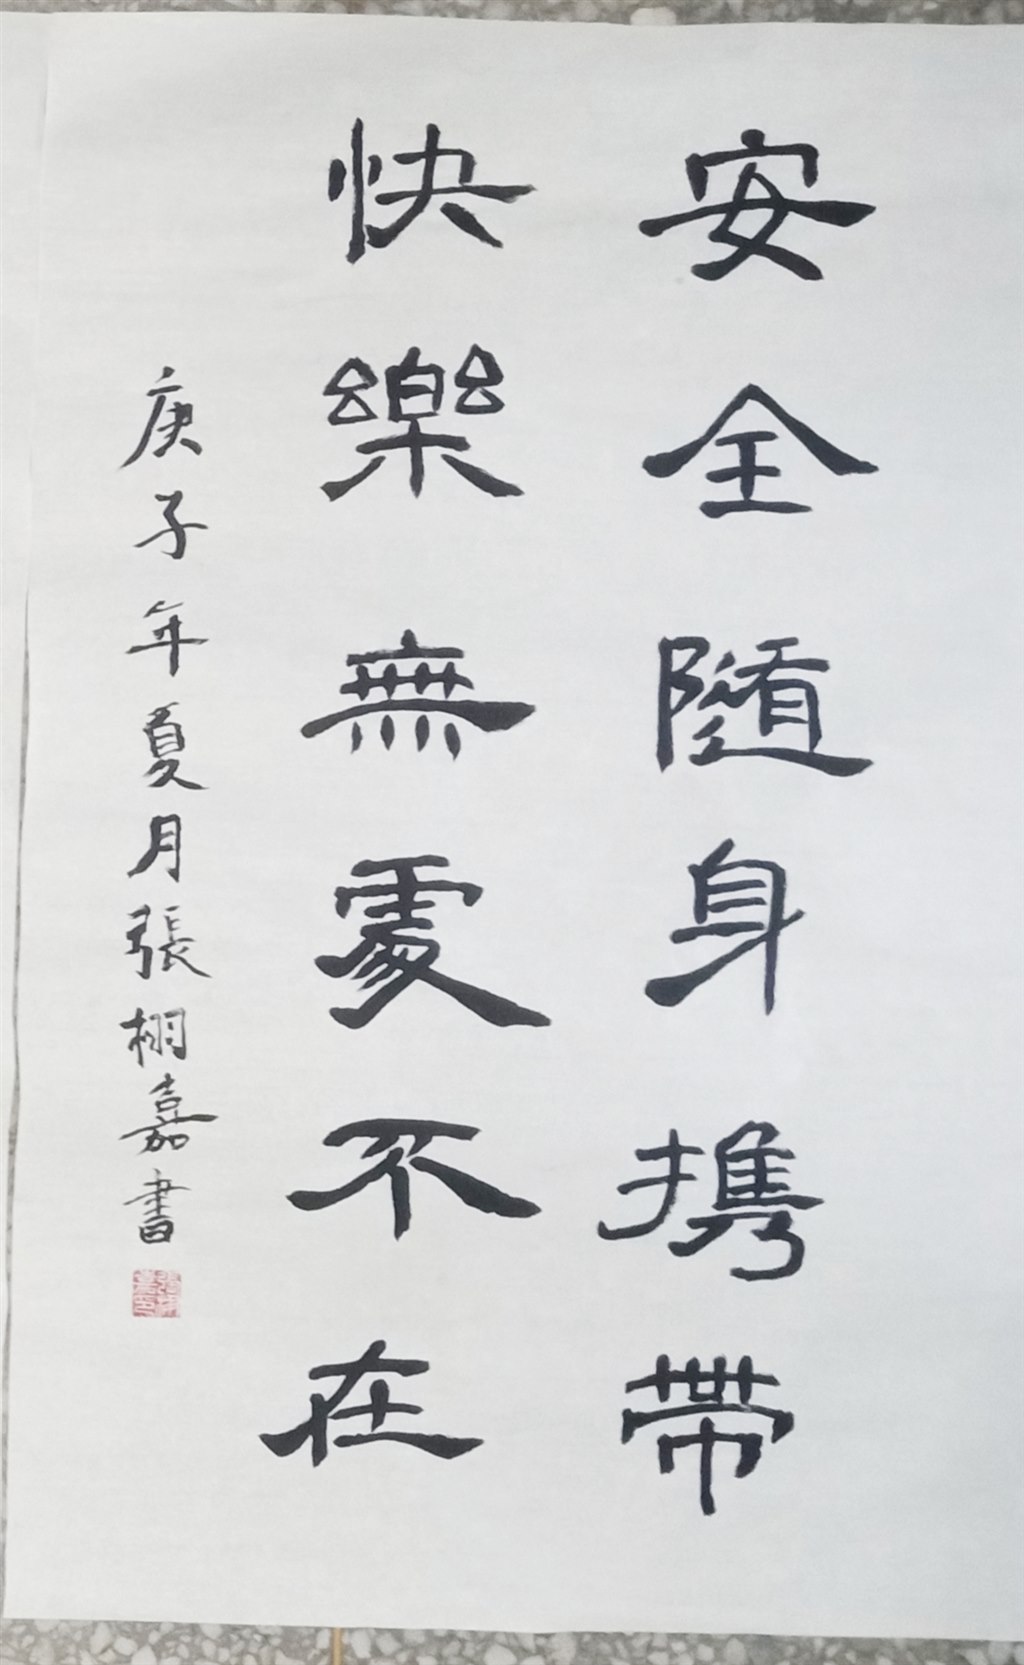 安全隨身携帶
快樂無處不在
庚子年夏月張栩嘉書